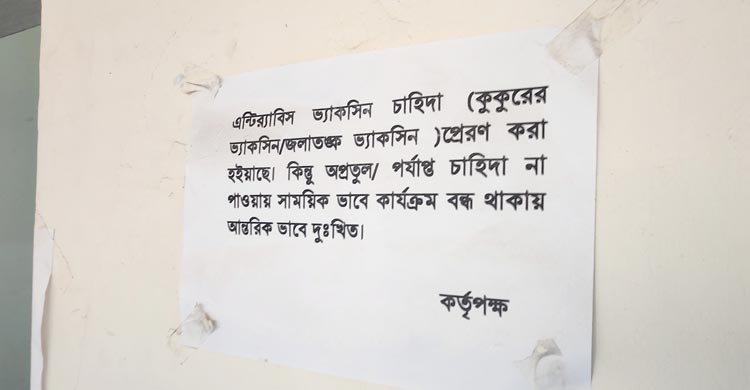 এন্টির‍্যাবিস ভ্যাকসিন চাহিদা (কুকুরের
ভ্যাকসিন/জলাতঙ্ক ভ্যাকসিন )প্রেরণ করা
হইয়াছে। কিন্তু অপ্রতুল/ পর্যাপ্ত চাহিদা না
পাওয়ায় সাময়িক ভাবে কার্যক্রম বন্ধ থাকায়
আন্তরিক ভাবে দুঃখিত।
কর্তৃপক্ষ